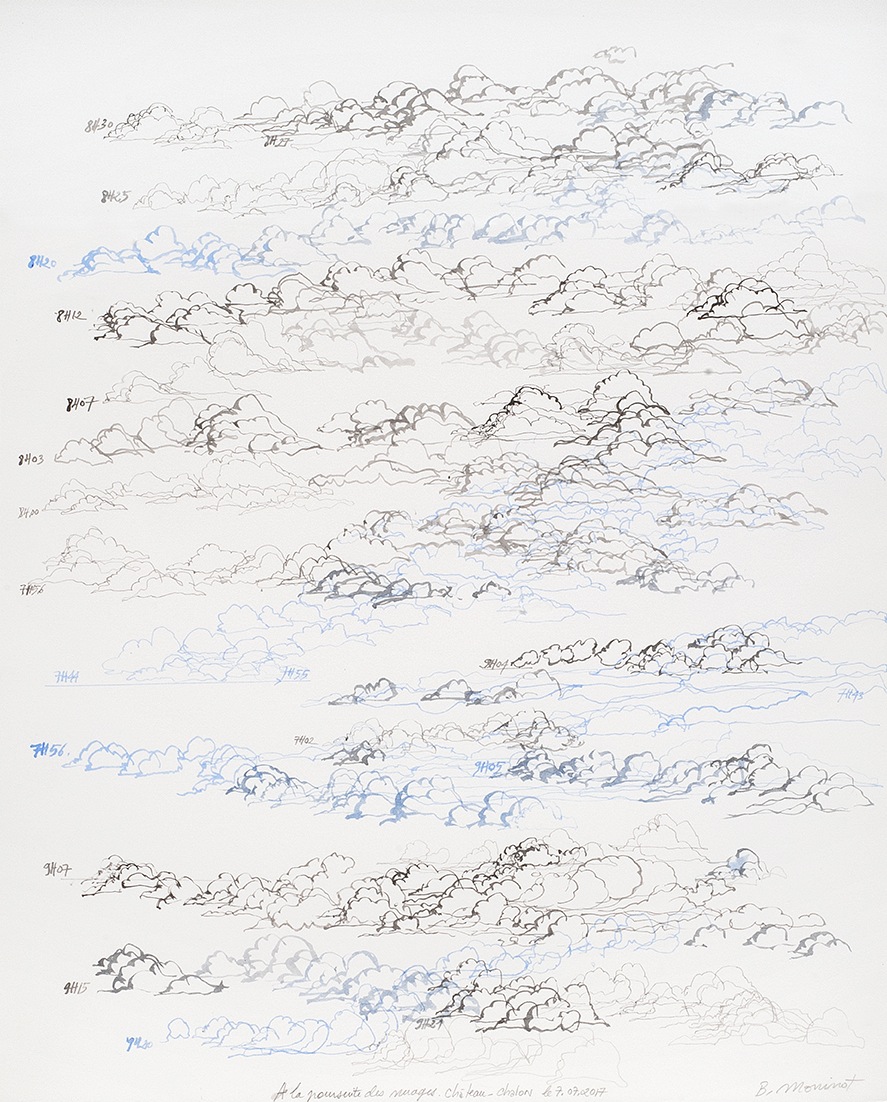 8H30
8H27
8H25
8H20
8H12
8H07
8H03
8H00
7H56
7H44 7H55
9H04
7H43
7H56.
7H02
9H05
9H07
9H15
9H21
9H20
A la poursuite des nuages. Château-Chalon le 7.07.2017 B. Moninot